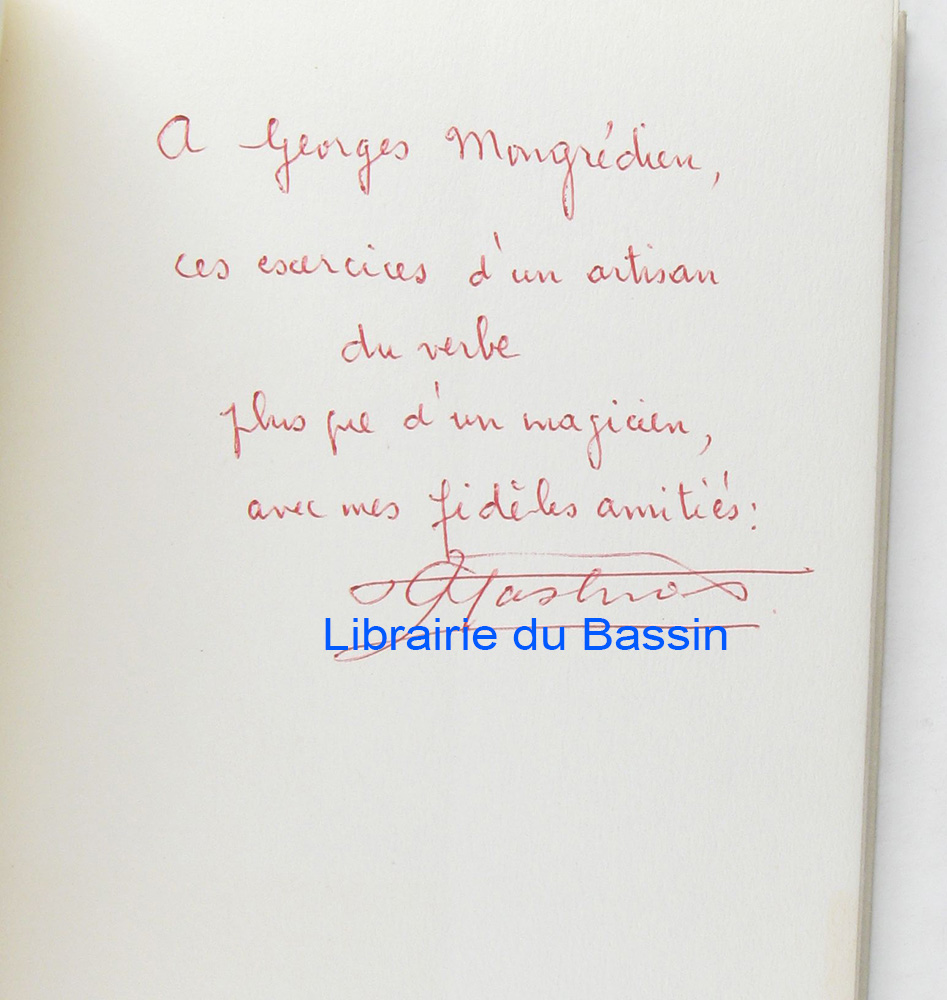 A Georges Mongrédien,
ces exercices d'un artisan
du verbe
plus que d'un magicien,
avec mes fidèles amitiés:
Librairie du Bassin